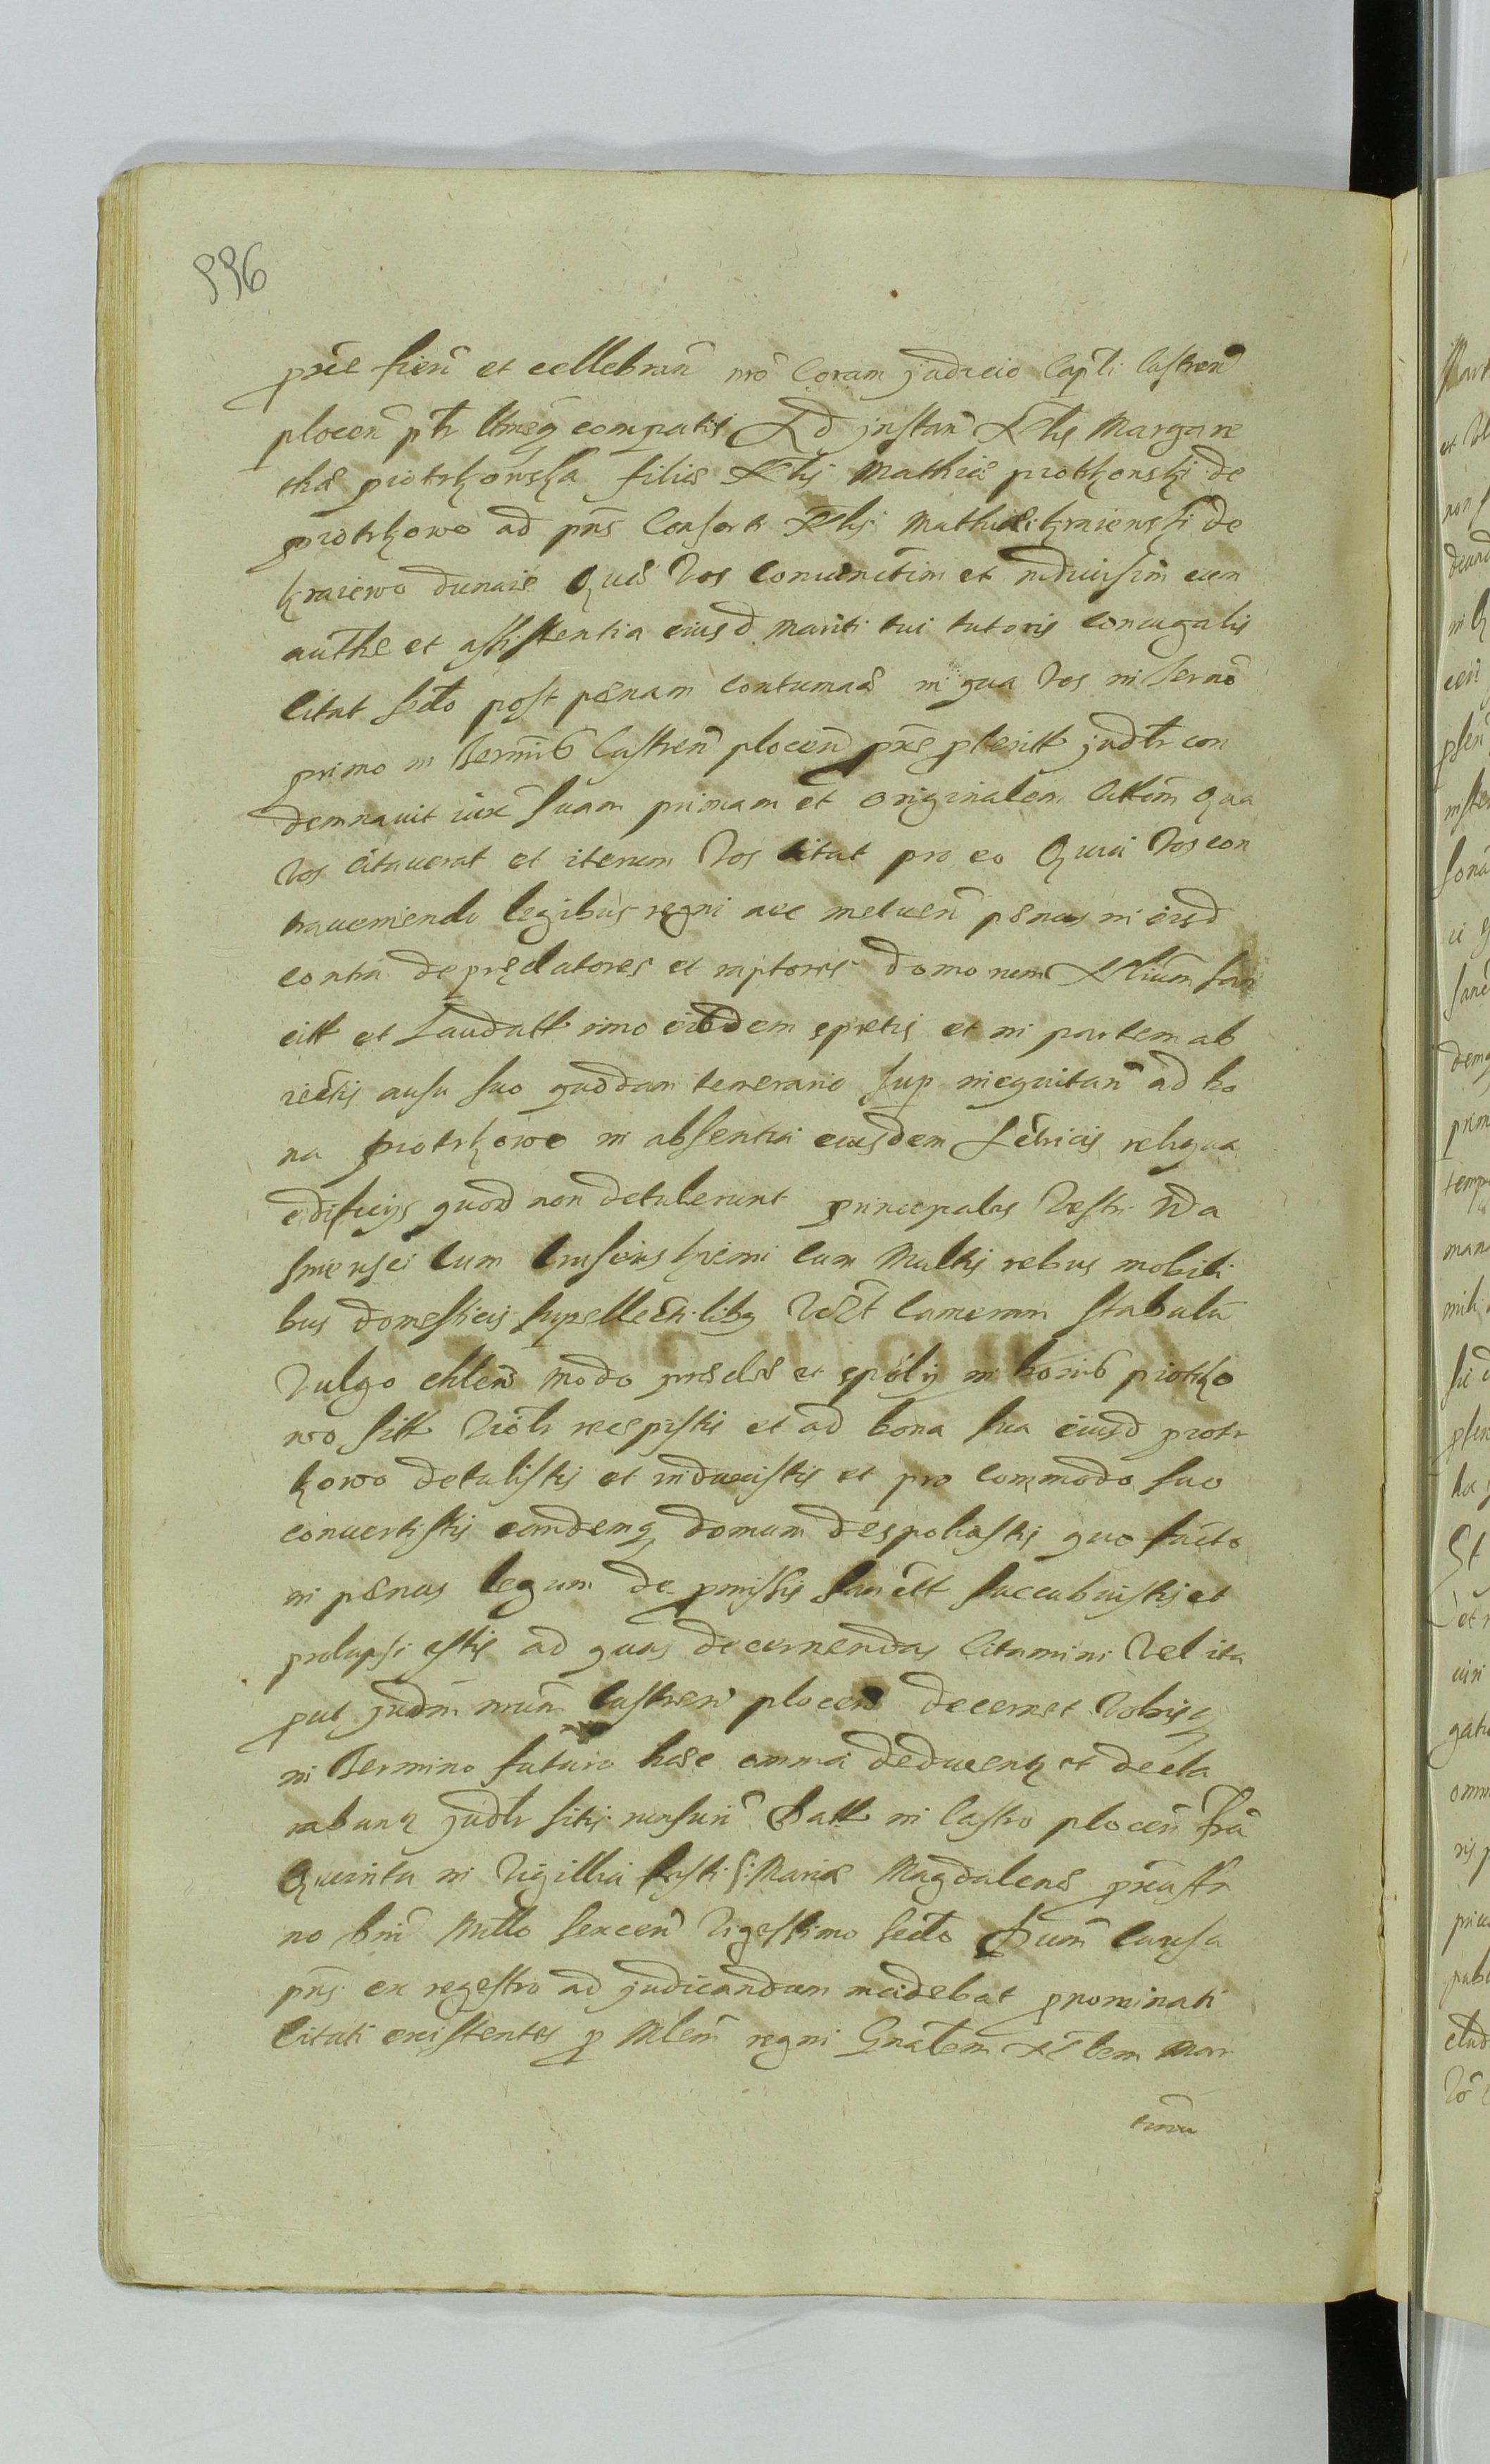 996
prñe fieñ et cellebrañ nrō Coram judicio Capłi Castreñ
ploceñ compatis Ad jnstañ Nłis Margare
thæ piotrkowska filiæ Nłis Mathiæ piotrkowski de
piotrkowo ad pñs Consorti Nłis Mathiæ kraiewski de
kraiewo Quæ Vos coniunctim et indivisim cum
authe et assistentia eiusd mariti tui tutoris coniugalis
Citat secto post pænam contumaciæ in qua Vos in Termō
primo in Termīs Castreñ ploceñ judłr con
demnavit iux suam primam et originalem Cittōm qua
Vos citaverat et iterum Vos citat pro eo Quia Vos con
traveniendo legibus regni nec metueñ pænas in eisd
contra deprædatores et raptores domorum Nłium san
citt et Laudatt imo eisdem spretis et in partem ab
iectis ausu suo quodam temerario sup inequitañ ad bo
na piotrkowo in absentia eiusdem Actricis reliqua
ædificijs quod non detulerunt principales Vestri
cum cum Multis rebus mobili
bus domesticis supellectilibq Vdt Cameram stabulū
Vulgo chlew modo prædæ et spolij in bonis piotrko
wo sitt violr recepistis et ad bona sua eiusd piotr
kowo detulistis et induxistis et pro commodo suo
convertistis eandemq domum despoliastis quo facto
in pænas legum de pmissis sancitt succubuistis et
prolapsi estis ad quas decernendas Citamini Vel ita
put judm nrum Castreñ ploceñ decernet Vobisq
in Termino futuro hæc omnia deducentr et decla
rabuntr judłr sitis rensuri Datt in Castro ploceñ fria
Quinta in Vigillia festi S: Mariæ Magdalenæ
no Dni Millo sexceñ Vigessimo secto Dum causa
pñs ex regestro ad judicandum incidebat pnominati
citati existentes p Mlem regni Gnałem Nłem Mar
tinū